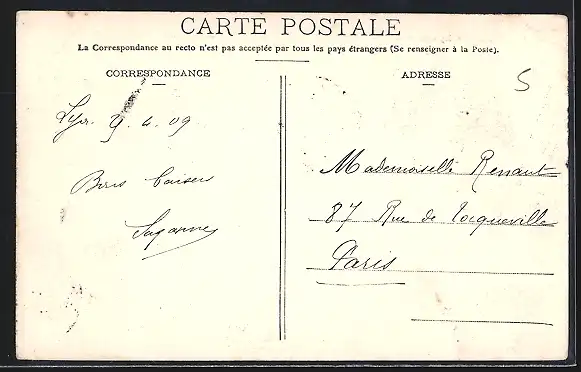 CARTE POSTALE
La Correspondance au recto n'est pas acceptée par tous les pays étrangers (Se renseigner à la Poste).
CORRESPONDANCE
ADRESSE
5
Lyon. 9. 4. 09
Bons baisers
Suzanne
Mademoiselle Renault
87 Rue de Tocqueville
Paris